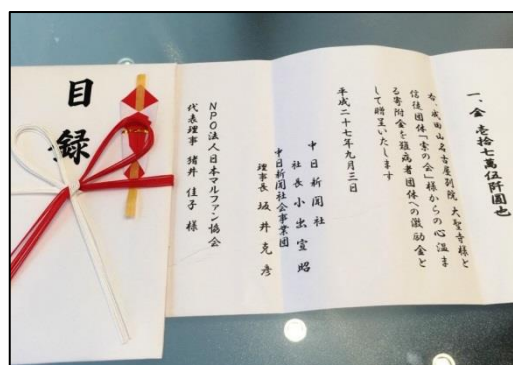 一、金 壱拾七萬伍阡圓也
右、成田山名古屋別院 大聖寺様と
信徒団体「索の会」様からの心温ま
る寄附金を難病者団体への激励金と
して贈呈いたします
平成二十七年九月三日
中日新聞社
社長 小出宣昭
中日新聞社会事業団
理事長 坂井克彦
NPO法人日本マルファン協会
代表理事 猪井佳子 様
目録